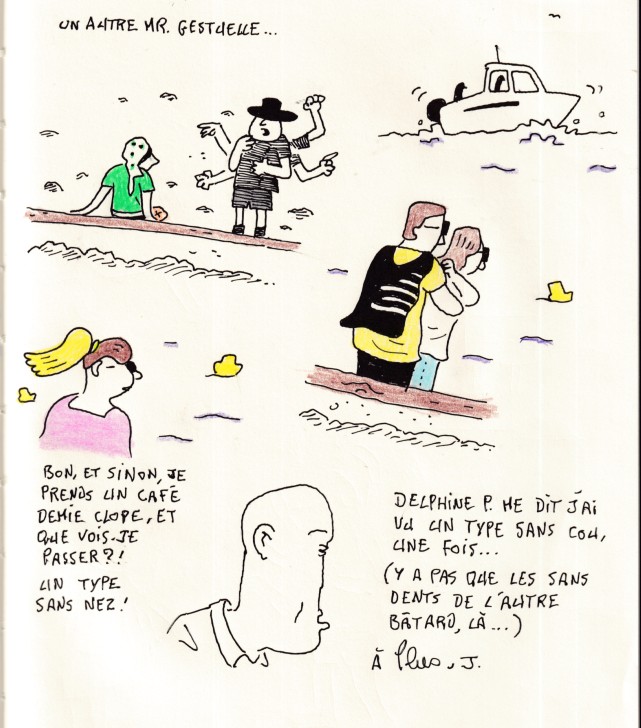 UN AUTRE MR. GESTUELLE...
BON, ET SINON, JE
PRENDS UN CAFÉ
DEMIE CLOPE, ET
QUE VOIS-JE
PASSER?!
UN TYPE
SANS NEZ!
DELPHINE P. ME DIT J'AI
VU UN TYPE SANS COU,
UNE FOIS...
(Y A PAS QUE LES SANS
DENTS DE L'AUTRE
BÂTARD, LÀ...)
À Plus, J.